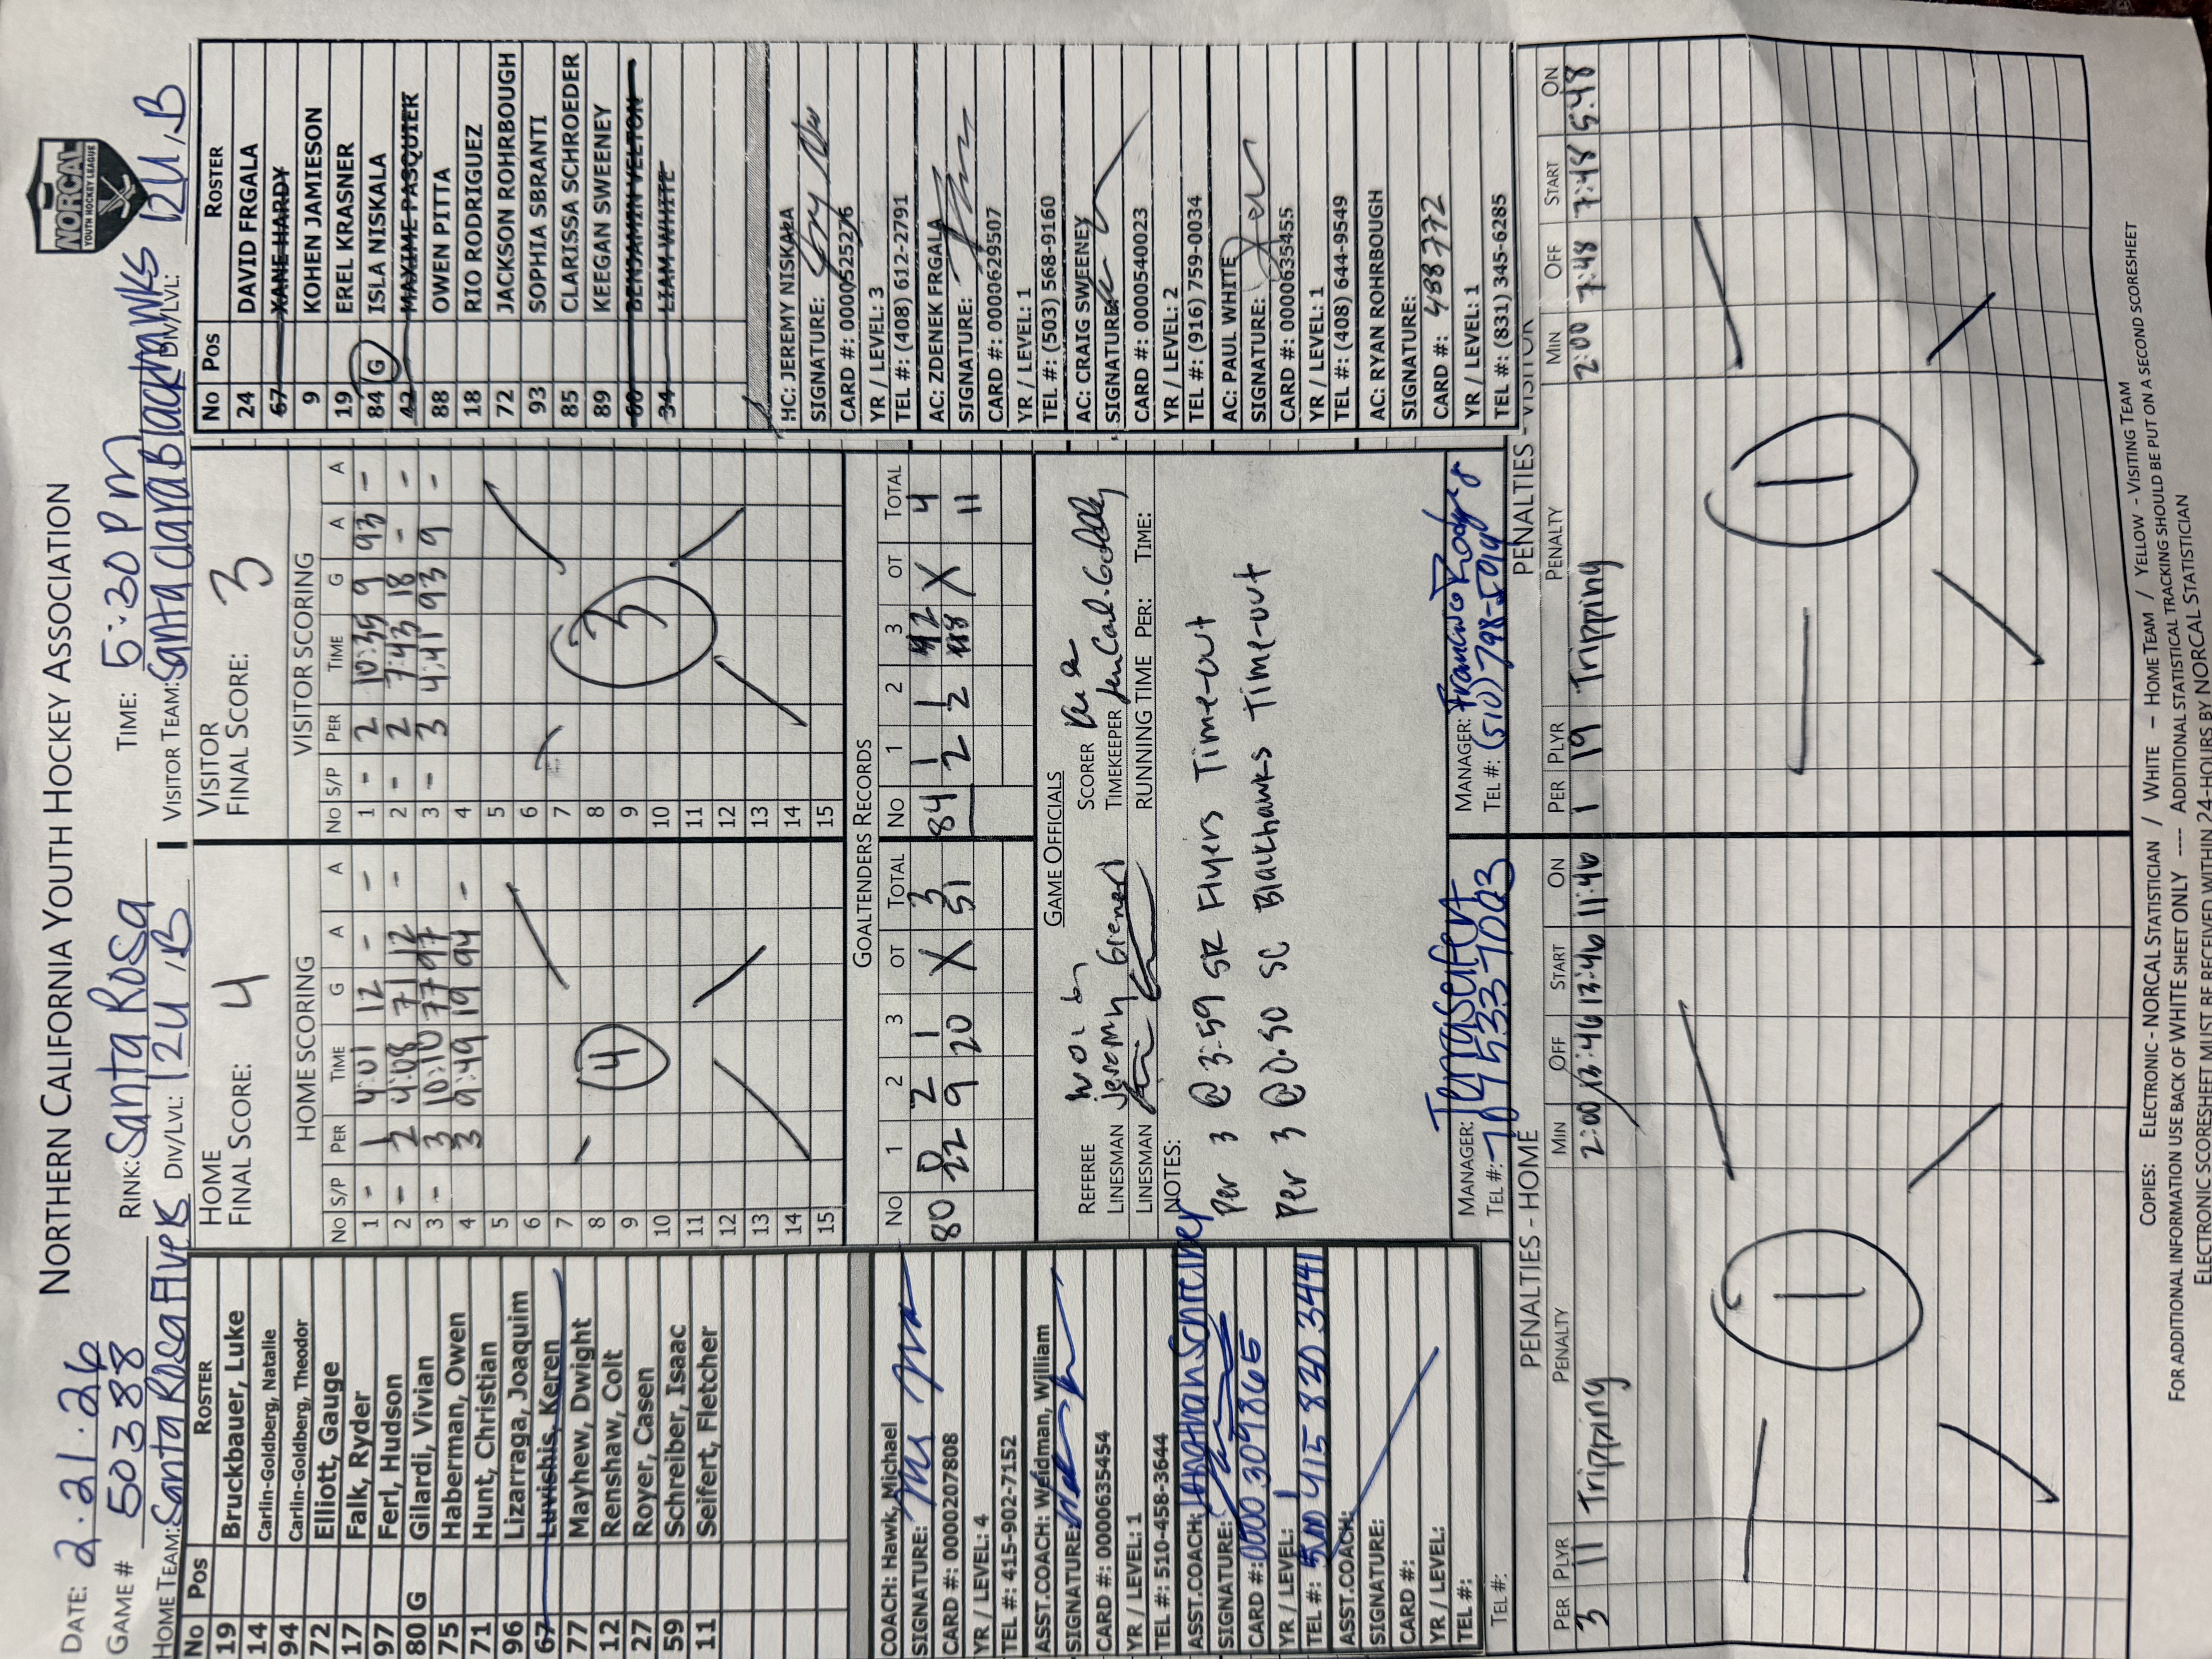 NORTHERN CALIFORNIA YOUTH HOCKEY ASSOCIATION
NORCAL
YOUTH HOCKEY LEAGUE
DATE: 2.21.26
GAME # 50388
RINK: Santa Rosa
TIME: 5:30 PM
HOME TEAM: Santa Rosa Flyers DIV/LVL: 12U B
VISITOR TEAM: Santa Clara Blackhawks DIV/LVL: 12U B
No Pos ROSTER
19 Bruckbauer, Luke
14 Carlin-Goldberg, Natalie
94 Carlin-Goldberg, Theodor
72 Elliott, Gauge
17 Falk, Ryder
97 Ferl, Hudson
80 G Gilardi, Vivian
75 Haberman, Owen
71 Hunt, Christian
96 Lizarraga, Joaquim
67 Luvishis, Keren
77 Mayhew, Dwight
12 Renshaw, Colt
27 Royer, Casen
59 Schreiber, Isaac
11 Seifert, Fletcher
COACH: Hawk, Michael
SIGNATURE:
CARD #: 0000207808
YR / LEVEL: 4
TEL #: 415-902-7152
ASST.COACH: Weidman, William
SIGNATURE:
CARD #: 0000635454
YR / LEVEL: 1
TEL #: 510-458-3644
ASST.COACH: Jonathan Schreiber
SIGNATURE:
CARD #: 0000309865
YR / LEVEL: 1
TEL #: 415 830 3441
ASST.COACH:
SIGNATURE:
CARD #:
YR / LEVEL:
TEL #:
TEL #:
HOME
FINAL SCORE: 4
HOME SCORING
No S/P PER TIME G A A
1 - 1 4:01 12 - -
2 - 2 4:08 71 12 -
3 - 3 10:10 77 97
4 3 9:49 19 94 -
5
6
7
8
9
10
11
12
13
14
15
4
VISITOR
FINAL SCORE: 3
VISITOR SCORING
No S/P PER TIME G A A
1 - 2 10:35 9 93 -
2 - 2 7:43 18 - -
3 - 3 4:41 93 9 -
4
5
6
7
8
9
10
11
12
13
14
15
3
GOALTENDERS RECORDS
No 1 2 3 OT TOTAL No 1 2 3 OT TOTAL
80 0 2 1 X 3 84 1 1 2 X 4
22 9 20 51 2 2 11
GAME OFFICIALS
REFEREE SCORER
LINESMAN Jeromy Grenert TIMEKEEPER
LINESMAN RUNNING TIME PER: TIME:
NOTES:
Per 3 @ 3:59 SR Flyers Time-out
Per 3 @ 0.50 SC Blackhawks Time-out
MANAGER: Tena Seifert
TEL #: 707 453 7003
MANAGER:
TEL #: (510) 798-5919
No Pos ROSTER
24 DAVID FRGALA
67 XANE HARDY
9 KOHEN JAMIESON
19 EREL KRASNER
84 G ISLA NISKALA
42 MAXIME PASQUIER
88 OWEN PITTA
18 RIO RODRIGUEZ
72 JACKSON ROHRBOUGH
93 SOPHIA SBRANTI
85 CLARISSA SCHROEDER
89 KEEGAN SWEENEY
60 BENSAMIN VELTON
34 LIAM WHITE
HC: JEREMY NISKALA
SIGNATURE:
CARD #: 0000525276
YR / LEVEL: 3
TEL #: (408) 612-2791
AC: ZDENEK FRGALA
SIGNATURE:
CARD #: 0000629507
YR / LEVEL: 1
TEL #: (503) 568-9160
AC: CRAIG SWEENEY
SIGNATURE:
CARD #: 0000540023
YR / LEVEL: 2
TEL #: (916) 759-0034
AC: PAUL WHITE
SIGNATURE:
CARD #: 0000635455
YR / LEVEL: 1
TEL #: (408) 644-9549
AC: RYAN ROHRBOUGH
SIGNATURE:
CARD #: 488772
YR / LEVEL: 1
TEL #: (831) 345-6285
PENALTIES - HOME
PER PLYR PENALTY MIN OFF START ON
3 11 Tripping 2:00 13:46 13:46 11:46
1
PENALTIES - VISITOR
PER PLYR PENALTY MIN OFF START ON
1 19 Tripping 2:00 7:48 7:48 5:48
1
COPIES: ELECTRONIC - NORCAL STATISTICIAN / WHITE - HOME TEAM / YELLOW - VISITING TEAM
FOR ADDITIONAL INFORMATION USE BACK OF WHITE SHEET ONLY ---- ADDITIONAL STATISTICAL TRACKING SHOULD BE PUT ON A SECOND SCORESHEET
ELECTRONIC SCORESHEET MUST BE RECEIVED WITHIN 24-HOURS BY NORCAL STATISTICIAN